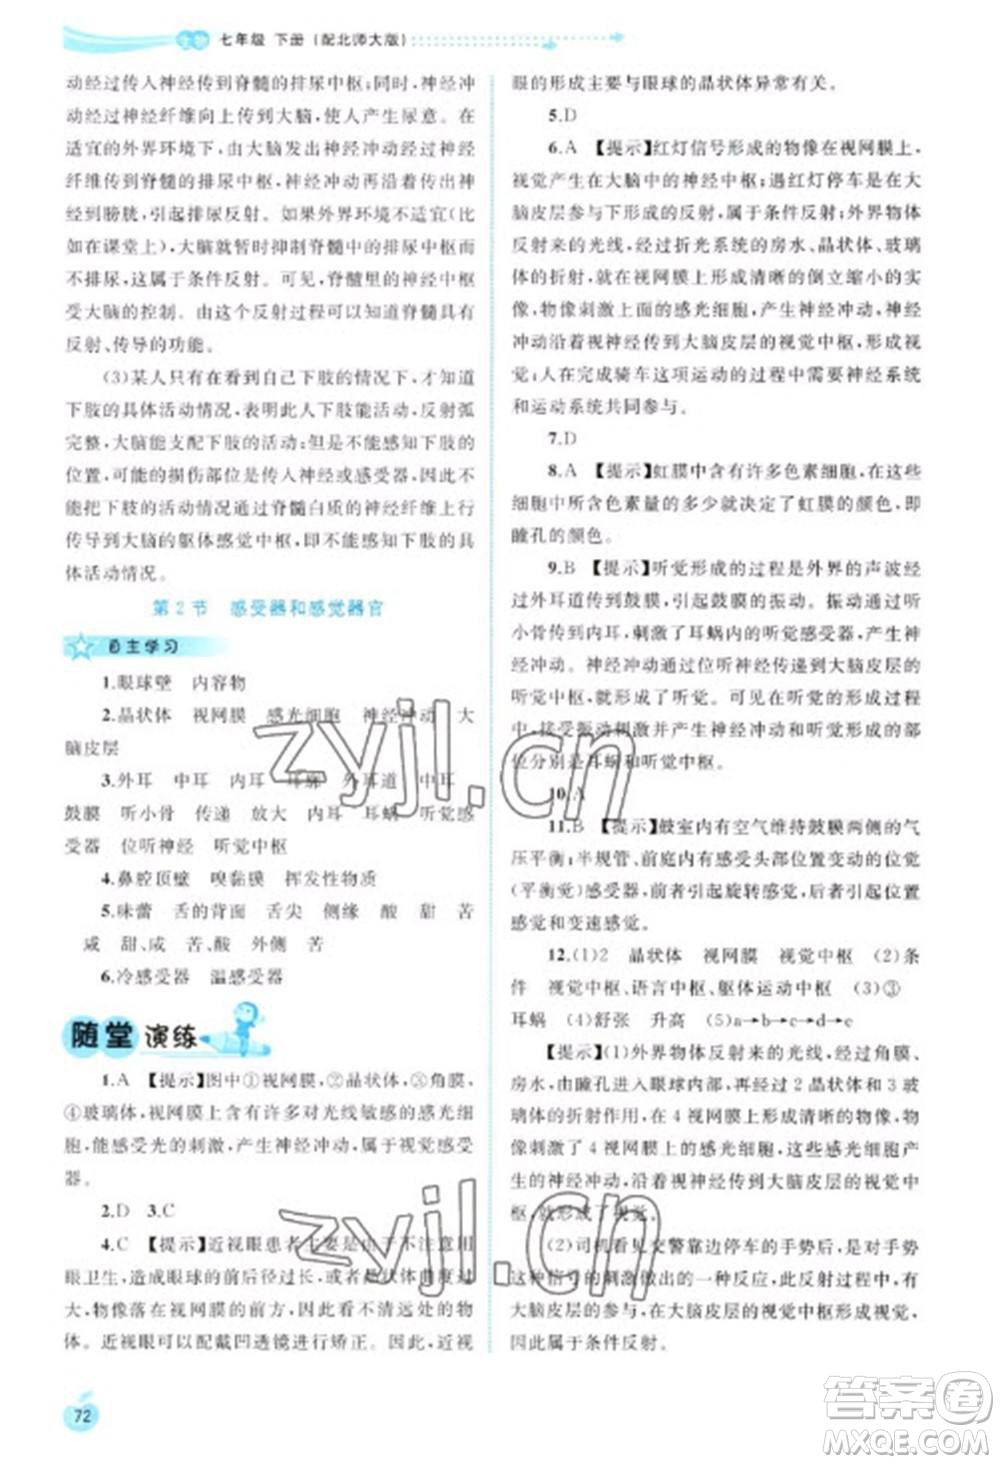 生物 七年级 下册(配北师大版)
动经过传入神经传到脊髓的排尿中枢;同时,神经冲
动经过神经纤维向上传到大脑,使人产生尿意。在
适宜的外界环境下,大脑发出的神经冲动经过神经
纤维传到脊髓的排尿中枢,再经过传出神经到效应
器的膀胱,引起排尿反射。如果外界环境不适宜(比
如在课堂上),大脑就暂时抑制脊髓中的排尿中枢
不排尿,这属于条件反射。可见,脊髓里的神经中枢
受大脑的控制。由这个反射过程可以知道脊髓具有
反射、传导的功能。
(3)某人只有在看到自己下肢的情况下,才知道
下肢的具体活动情况,表明此人下肢能活动,反射弧
完整,大脑能支配下肢的活动;但是不能感觉下肢的
位置,可能的损伤部位是传入神经或感受器,因此不
能把下肢的活动情况经脊髓白质的神经纤维上行
传导到大脑的躯体感觉中枢,即不能感知下肢的具
体活动情况。
第2节 感受器和感觉器官
自主学习
1.眼球壁 内容物
2.晶状体 视网膜 感光细胞 神经冲动 大
脑皮层
3.外耳 中耳 内耳 耳廓 外耳道 中耳
鼓膜 听小骨 传递 放大 内耳 耳蜗 听觉感
受器 位听神经 听觉中枢
4.鼻腔顶壁 嗅黏膜 挥发性物质
5.味蕾 舌的背面 舌尖 侧缘 酸 甜 苦
咸 甜、咸 苦、酸 外侧 苦
6.冷感受器 温感受器
随堂演练
1.A 【提示】图中①视网膜,②晶状体,③角膜,
④玻璃体,视网膜上含有许多对光线敏感的感光细
胞,能感受光的刺激,产生神经冲动,属于视觉感受
器。
2.D 3.C
4.C 【提示】近视眼患者主要是由于不注意用
眼卫生,造成眼球的前后径过长,或晶状体的曲度过
大,物像落在视网膜的前方,因此看不清远处的物
体。近视眼可以配戴凹透镜进行矫正。因此,近视
眼的形成主要与眼球的晶状体异常有关。
5.D
6.A 【提示】红灯信号形成的物像在视网膜上,
视觉产生在大脑中的神经中枢;遇红灯停车是在大
脑皮层参与下形成的反射,属于条件反射;外界物体
反射来的光线,经过折光系统的房水、晶状体、玻璃
体的折射,就在视网膜上形成清晰的倒立缩小的实
像,物像刺激上面的感光细胞,产生神经冲动,神经
冲动沿着视神经传到大脑皮层的视觉中枢,产生视
觉;人在完成骑车这项运动的过程中需要神经系统
和运动系统共同参与。
7.D
8.A 【提示】虹膜中含有许多色素细胞,在这些
细胞中所含色素量的多少就决定了虹膜的颜色,即
瞳孔的颜色。
9.B 【提示】听觉形成的过程是外界的声波经过
过外耳道到鼓膜,引起鼓膜的振动,振动通过听
小骨传到内耳,刺激了耳蜗内的听觉感受器,产生神
经冲动。神经冲动通过位听神经传到大脑皮层的
听觉中枢,就形成了听觉。可见听觉的形成过程
中,接受振动刺激并产生神经冲动和听觉形成的部
位分别是耳蜗和听觉中枢。
10.A
11.B 【提示】鼓室内有空气维持鼓膜两侧的气
压平衡;半规管、前庭内有感受头部位置变动的位觉
(平衡觉)感受器,前者引起旋转感觉,后者引起位置
感觉和变速感觉。
12.(1)2 晶状体 视网膜 视觉中枢 (2)条
件 视觉中枢、语言中枢、躯体运动中枢 (3)③
耳蜗 (4)舒张 升高 (5)a→b→d→c→e
【提示】(1)外界物体反射来的光线,经角膜、
房水,由瞳孔进入眼球内部,再经过2晶状体和玻
璃体的折射作用,在4视网膜上形成清晰的物像,物
像刺激了4视网膜上的感光细胞,这些感光细胞产
生的神经冲动,沿着视神经传到大脑皮层的视觉中
枢,就形成了视觉。
(2)司机看见交警靠边停车的手势后,对手势
这种信号的刺激做出的一种反应,是在原有非条件反
射的基础上,在大脑皮层的视觉中枢参与下形成,
因此属于条件反射。
72
zyjl.cn
zyjl.cn
答案圈
MXQE.COM